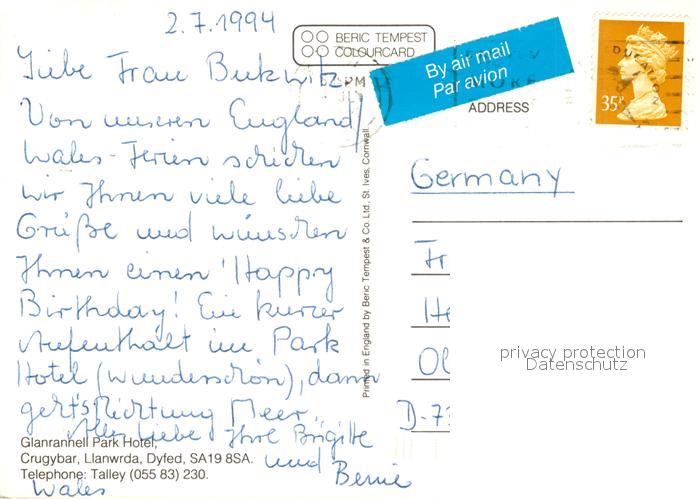 2.7.1994
BERIC TEMPEST
COLOURCARD
Liebe Frau Beckwitz
Von unseren England/
Wales-Ferien schicken
wir Ihnen viele liebe
Grüße und wünschen
Ihnen einen 'Happy
Birthday! Ein kurzer
Aufenthalt im Park
Hotel (wunderschön), dann
geht's Richtung Meer.
Alles Liebe Ihre Brigitte
und Bernie
Glanrannell Park Hotel,
Crugybar, Llanwrda, Dyfed, SA19 8SA.
Telephone: Talley (055 83) 230.
Wales
Printed in England by Beric Tempest & Co. Ltd., St. Ives, Cornwall.
By air mail
Par avion
PM
EDUCATION
35P
ADDRESS
Germany
Fr
He
Ol
D-73
privacy protection
Datenschutz